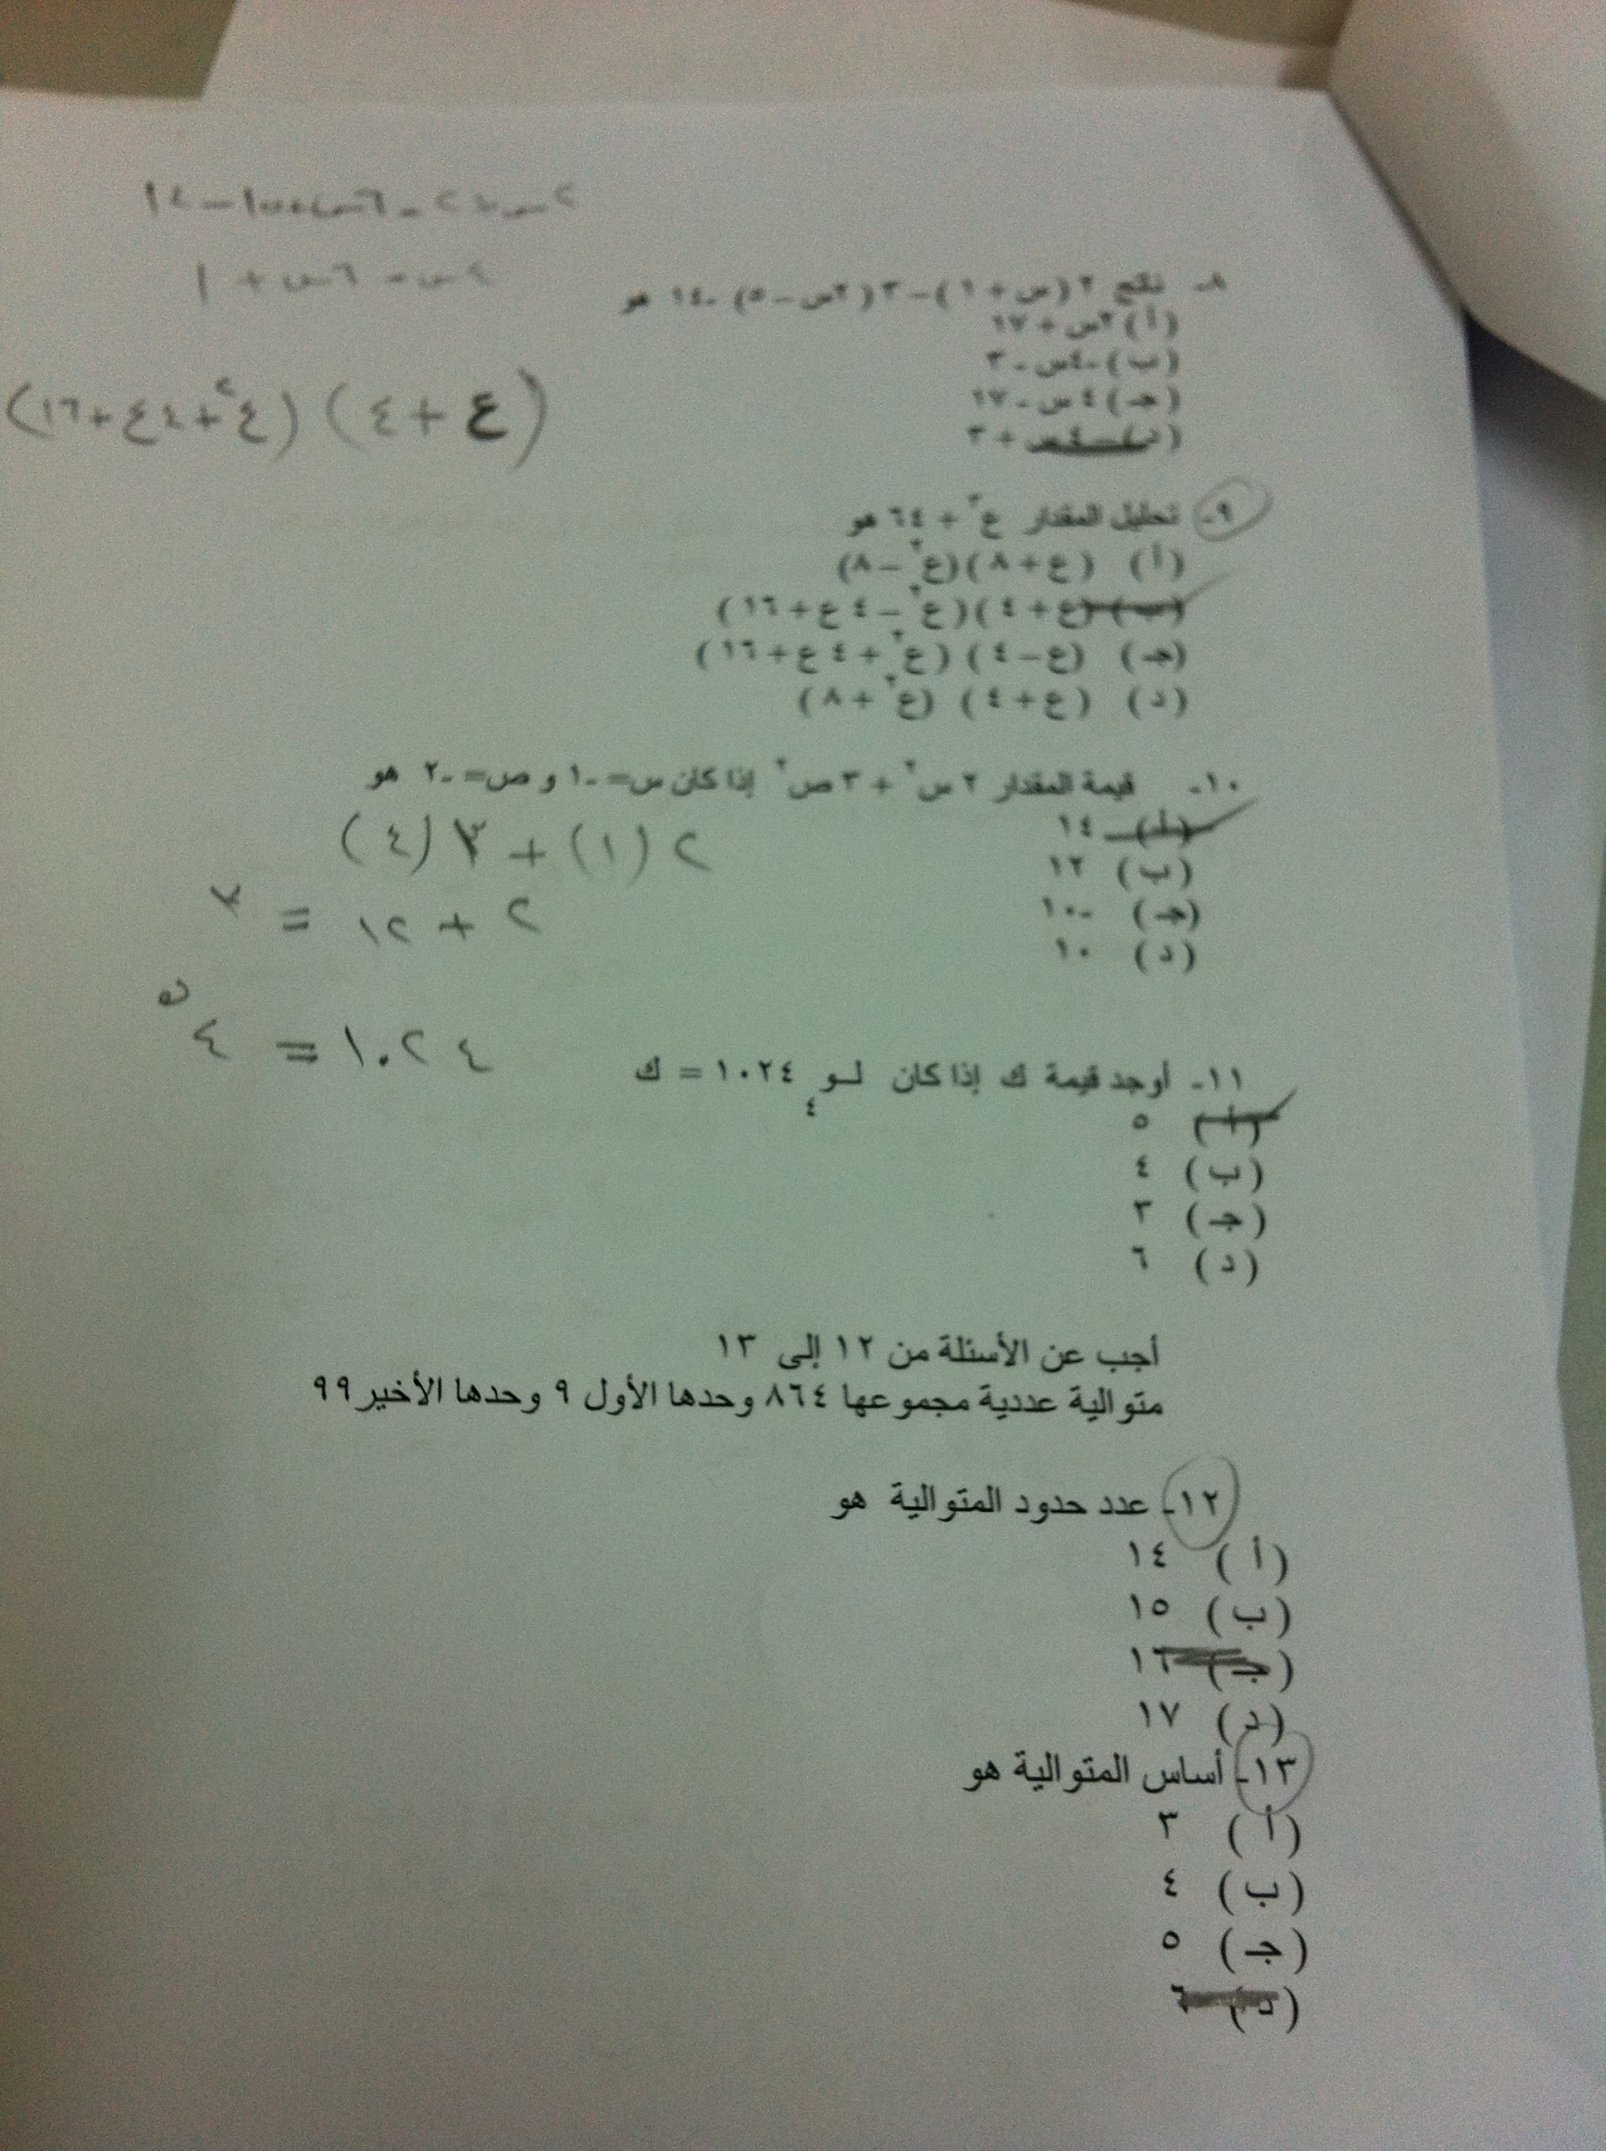 ٢س+٢-٦س+١٥-١٤
٨- ناتج ٢(س+١)-٣(٢س-٥)-١٤ هو
(أ) ٢س+١٧
(ب) -٤س-٣
(جـ) ٤س-١٧
(د) -٤س+٣
(ع+٤)(ع٢+٤ع+١٦)
٩- تحليل المقدار ع٣+٦٤ هو
(أ) (ع+٨)(ع٢-٨)
(ب) (ع+٤)(ع٢-٤ع+١٦)
(جـ) (ع-٤)(ع٢+٤ع+١٦)
(د) (ع+٤)(ع٢+٨)
١٠- قيمة المقدار ٢س٢+٣ص٢ إذا كان س=-١ و ص=-٢ هو
(أ) ١٤
(ب) ١٢
(جـ) -١٠
(د) ١٠
٢(١)+٣(٤)
٢+١٢=
١٠٢٤=٤
١١- أوجد قيمة ك إذا كان لــو٤ ١٠٢٤=ك
(أ) ٥
(ب) ٤
(جـ) ٣
(د) ٦
أجب عن الأسئلة من ١٢ إلى ١٣
متوالية عددية مجموعها ٨٦٤ وحدها الأول ٩ وحدها الأخير ٩٩
١٢- عدد حدود المتوالية هو
(أ) ١٤
(ب) ١٥
(جـ) ١٦
(د) ١٧
١٣- أساس المتوالية هو
(أ) ٣
(ب) ٤
(جـ) ٥
(د) ٦